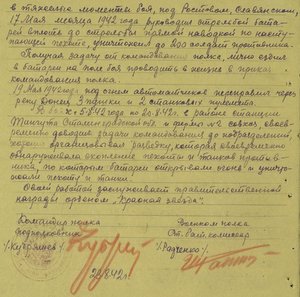 в тяжелые моменты боя, под Ростовом, Славянском,
17 Мая месяца 1942 года руководил стрельбой бата-
рей вплоть до стрельбы прямой наводкой по насту-
пающей пехоте, уничтожил до 200 солдат противника.
Получая задачу от командования полка, лично ездил
в батареи на поле боя проводить в жизнь приказ
командования полка.
19 Мая 1942 года под огнем автоматчиков переправил через
реку Донец 3 пушки и 2 станковых пулемета.
В боях с 5.8.42г. по 8.8.42г. в районе станции
Тингута и фермы № 2 совхоз, свое-
временно доводил задачи командования до подразделений,
хорошо организовал разведку, которая своевременно
обнаруживала скопление пехоты и танков против-
ника, по которым батареи открывали огонь и уничто-
жали пехоту и танки.
Своей работой заслуживает правительственной
награды орденом "Красная звезда".
Командир полка
подполковник
/Кудрявцев/
Военком полка
Ст. бат. комиссар
/Радченко/
22.8.42г.